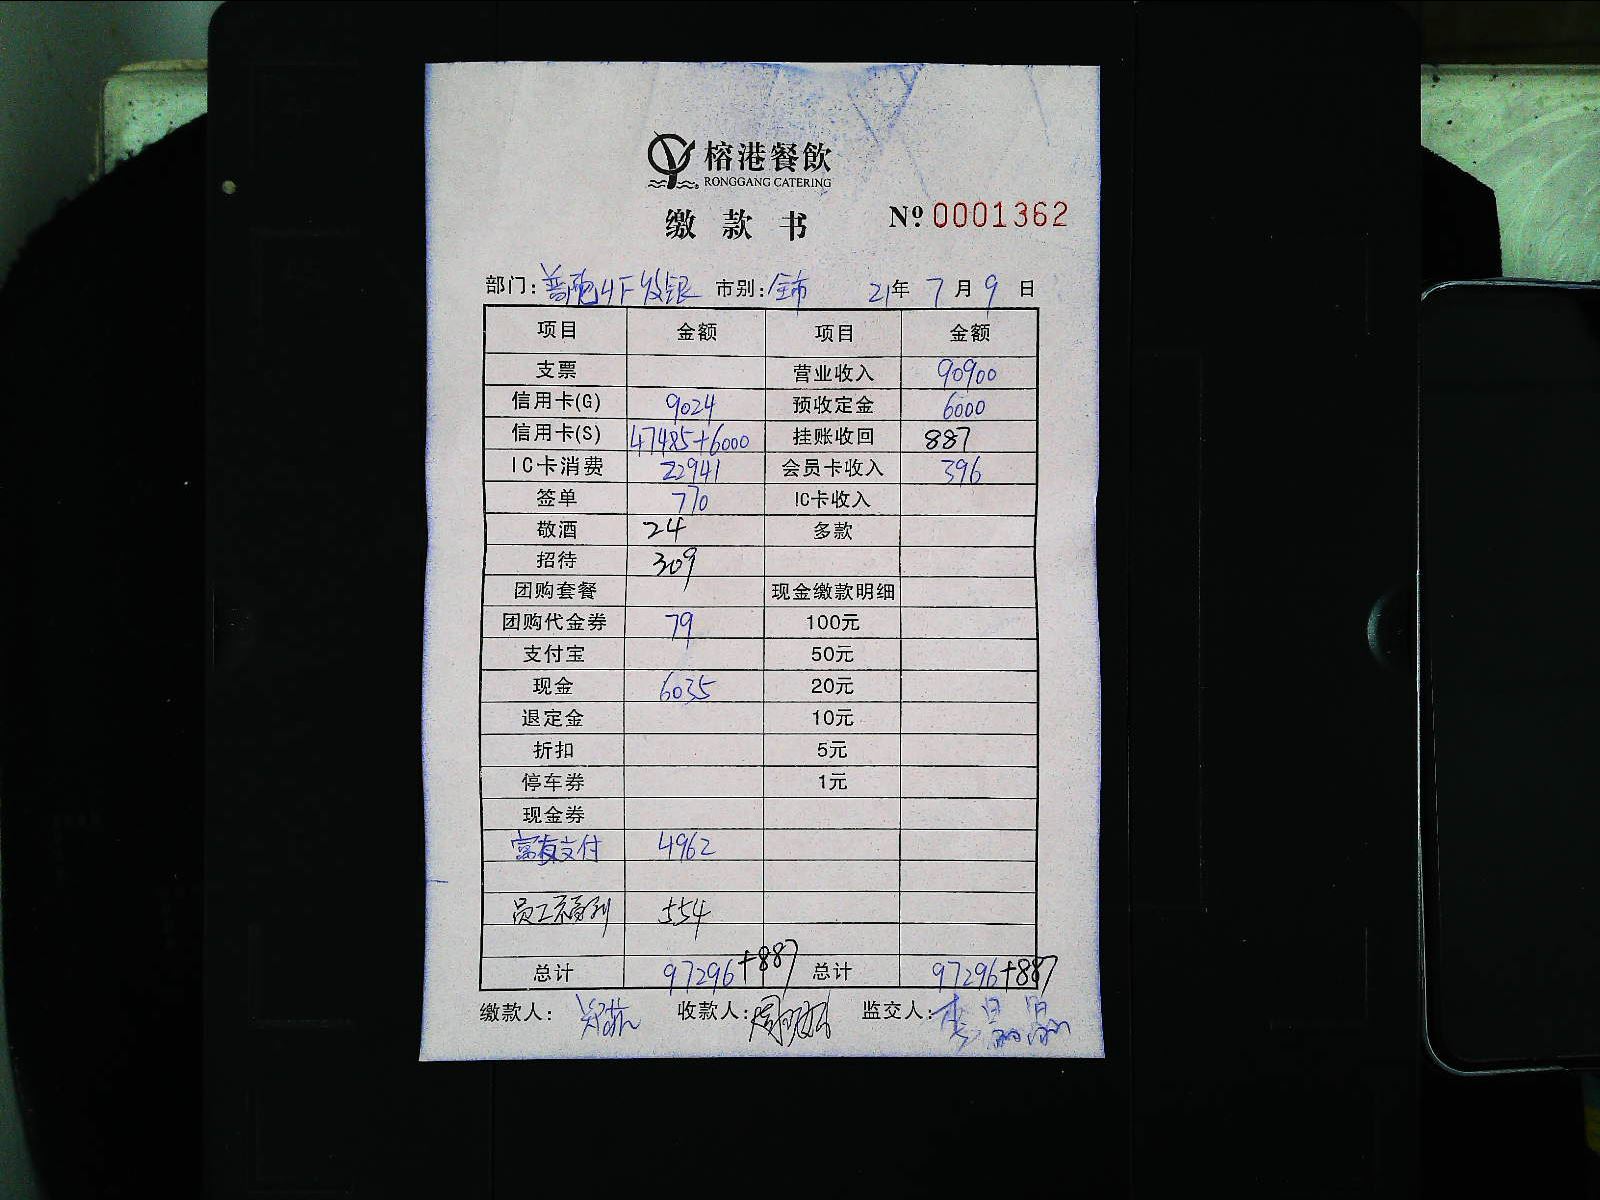 榕港餐飲
RONGGANG CATERING
缴款书 Nº 0001362
部门: 普陀4F收银 市别: 全市 21年 7月 9日
项目 金额 项目 金额
支票 营业收入 90900
信用卡(G) 9024 预收定金 6000
信用卡(S) 47485+6000 挂账收回 887
IC卡消费 22941 会员卡收入 396
签单 770 IC卡收入
敬酒 24 多款
招待 309
团购套餐 现金缴款明细
团购代金券 79 100元
支付宝 50元
现金 6035 20元
退定金 10元
折扣 5元
停车券 1元
现金券
富友支付 4962
员工福利 554
总计 97296+887 总计 97296+887
缴款人: 收款人: 监交人: 李晶晶